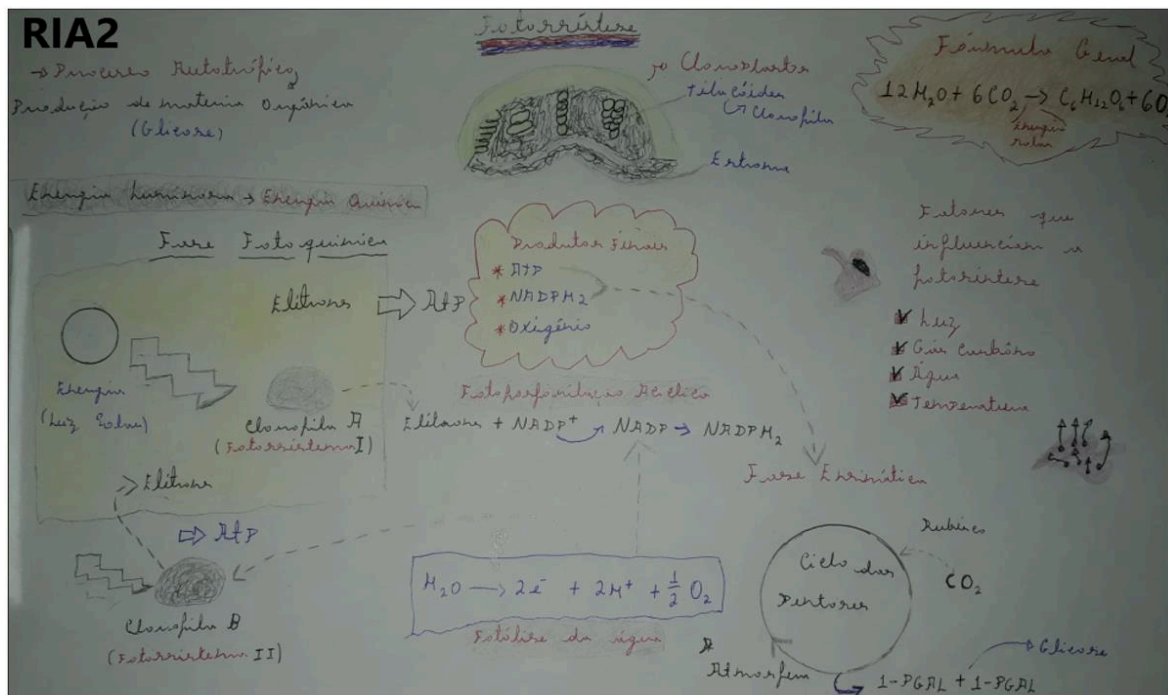 RIA2
Fotossíntese
→ Processo Autotrófico
Produção de matéria Orgânica
(Glicose)
Cloroplastos
Tilacóides
Clorofila
Estroma
Fórmula Geral
12H₂O + 6CO₂ → C₆H₁₂O₆ + 6O₂
Energia
solar
Energia Luminosa → Energia Química
Fase Fotoquímica
Elétrons ⇨ AtP
Energia
(Luz Solar)
Clorofila A
(Fotossistema I)
Elétrons
⇨ AtP
Clorofila B
(Fotossistema II)
Produtos Finais
* AtP
* NADPH2
* Oxigênio
Fotofosforilação Acíclica
Elétrons + NADP⁺ → NADP → NADPH₂
H₂O → 2é + 2H⁺ + 1/2 O₂
Fotólise da água
Fatores que
influenciam a
fotossíntese
Luz
Gás carbôno
Água
Temperatura
Fase Enzimática
Ciclo das
Pentoses
Rubisco
CO₂
Atmosfera
1-PGAL + 1-PGAL
Glicose